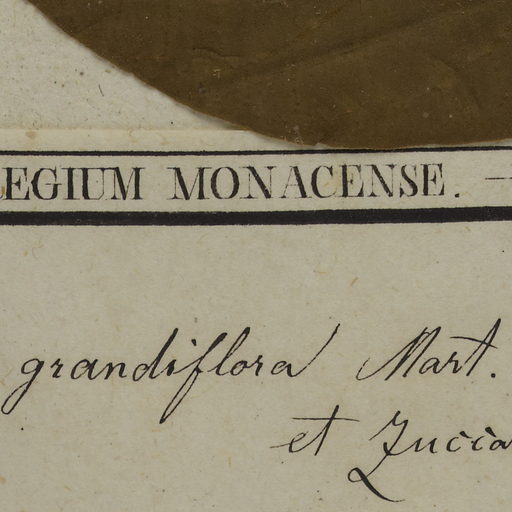 EGIUM MONACENSE. —
grandiflora Mart.
et Zucca